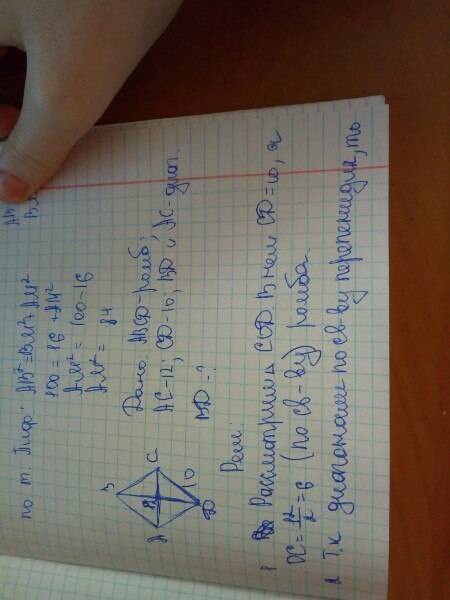 AB
BM
по т. Пиф: AB²=BM²+AM²
100=16+AM²
AM²=100-16
AM²=84
Дано: ABCD-ромб;
AC-12; CD-10; BD и AC-диаг.
BD-?
B
A
C
10
D
Реш:
1 Рассмотрим △ COD. В нем CD=10, а
OC=12/2=6 (по св-ву) ромба.
2 Т.к диагонали по св-ву перпендик, то